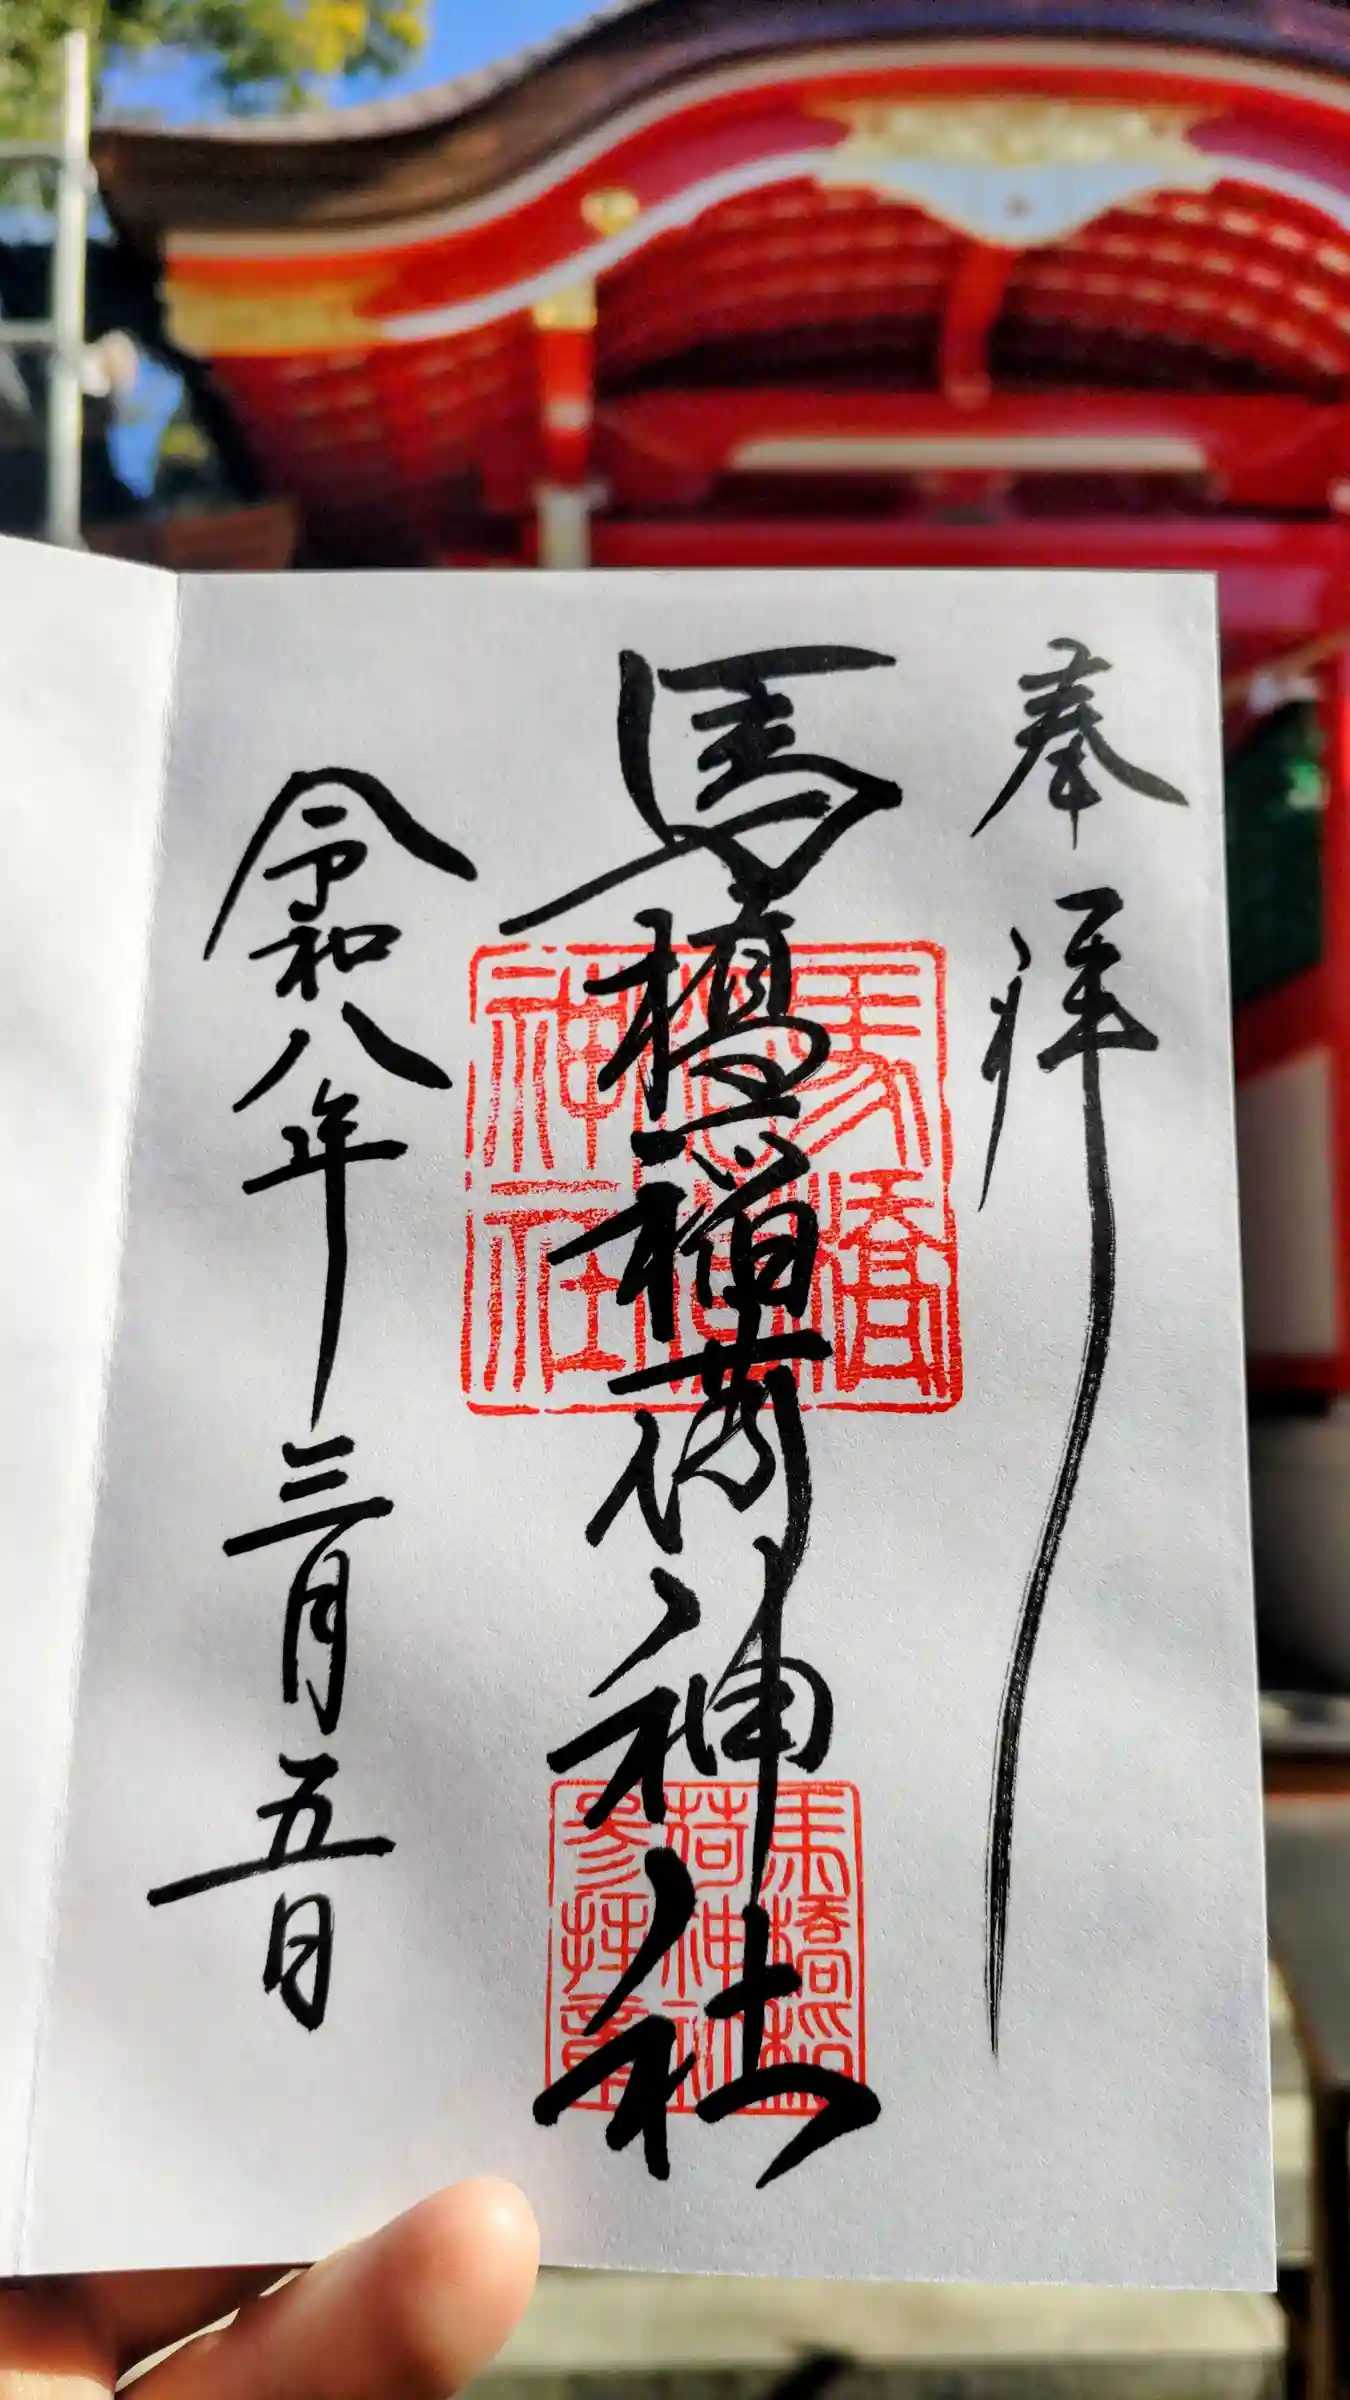 奉拝
馬橋稲荷神社
令和八年三月五日
馬橋
神社
馬橋稲
荷神社
参拝